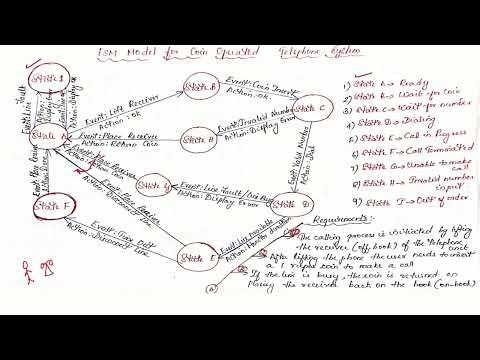 FSM Model for Coin Operated Telephone System
State I
Event: Lift Receiver
Action: OK
State B
Event: Coin Insert
Action: OK
State C
State A
Event: Place Receiver
Action: Return Coin
State H
Event: Invalid Number
Action: Display Error
Event: Valid Number
Action: Dial
State G
Event: Line Fault / Line Busy
Action: Display Error
State D
State F
Event: Place Receiver
Action: Disconnect Line
Event: Time Out
Action: Disconnect Line
State E
Event: Line Available
1) State A → Ready
2) State B → Wait for Coin
3) State C → Wait for number
4) State D → Dialing
5) State E → Call in Progress
6) State F → Call Terminated
7) State G → Unable to make call
8) State H → Invalid number input
9) State I → Out of order
Requirements:-
The calling process is initiated by lifting
the receiver (off hook) of the telephone unit
After lifting the phone the user needs to insert
a 1 rupee coin to make a call
If the line is busy, the coin is returned on
placing the receiver back on the hook (on-hook)